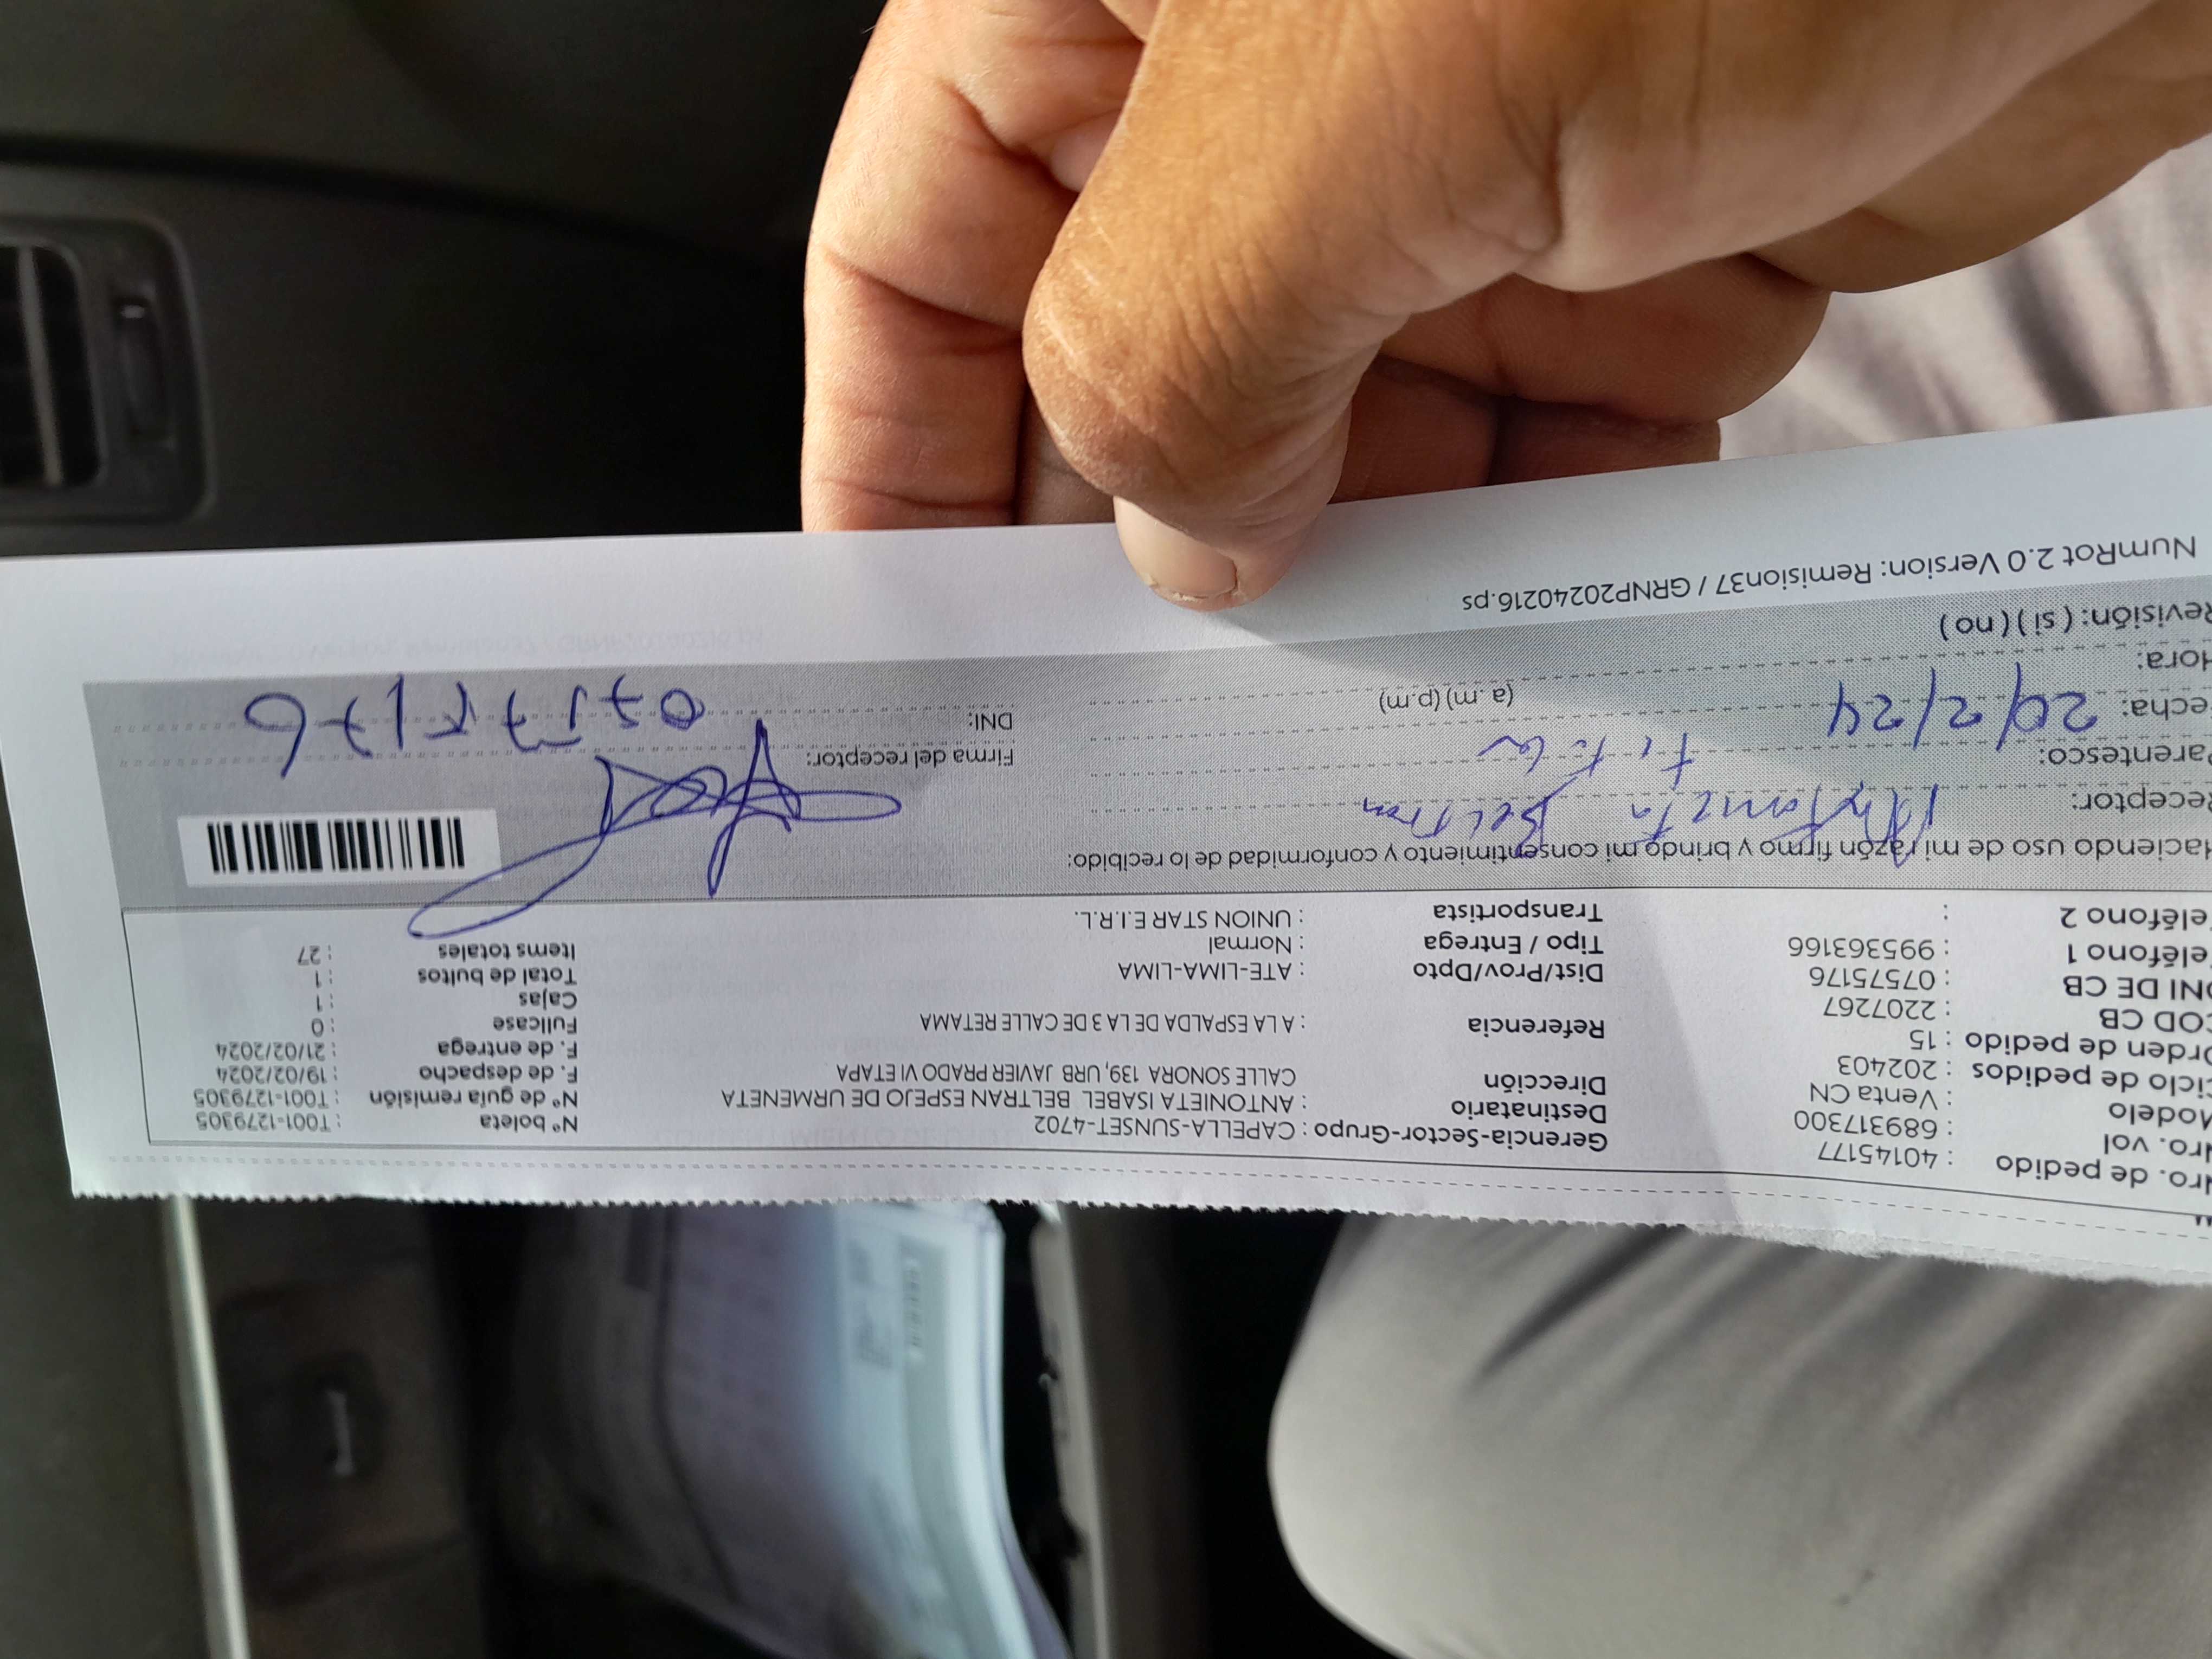 Nro. de pedido : 40145177
Nro. vol : 689317300
Modelo : Venta CN
Ciclo de pedidos : 202403
Orden de pedido : 15
COD CB : 2207267
DNI DE CB : 07575176
Teléfono 1 : 995363166
Teléfono 2 :
Gerencia-Sector-Grupo : CAPELLA-SUNSET-4702
Destinatario : ANTONIETA ISABEL BELTRAN ESPEJO DE URMENETA
Dirección CALLE SONORA 139, URB JAVIER PRADO VI ETAPA
Referencia : A LA ESPALDA DE LA 3 DE CALLE RETAMA
Dist/Prov/Dpto : ATE-LIMA-LIMA
Tipo / Entrega : Normal
Transportista : UNION STAR E.I.R.L.
N° boleta : T001-1279305
N° de guía remisión : T001-1279305
F. de despacho : 19/02/2024
F. de entrega : 21/02/2024
Fullcase : 0
Cajas : 1
Total de bultos : 1
Items totales : 27
Haciendo uso de mi razón firmo y brindo mi consentimiento y conformidad de lo recibido:
Receptor: Antonieta Beltran
Parentesco: Titular
Fecha: 20/2/24
Hora: (a. m) (p.m)
Revisión: ( si ) ( no )
Firma del receptor:
DNI: 07575176
NumRot 2.0 Version: Remision37 / GRNP20240216.ps